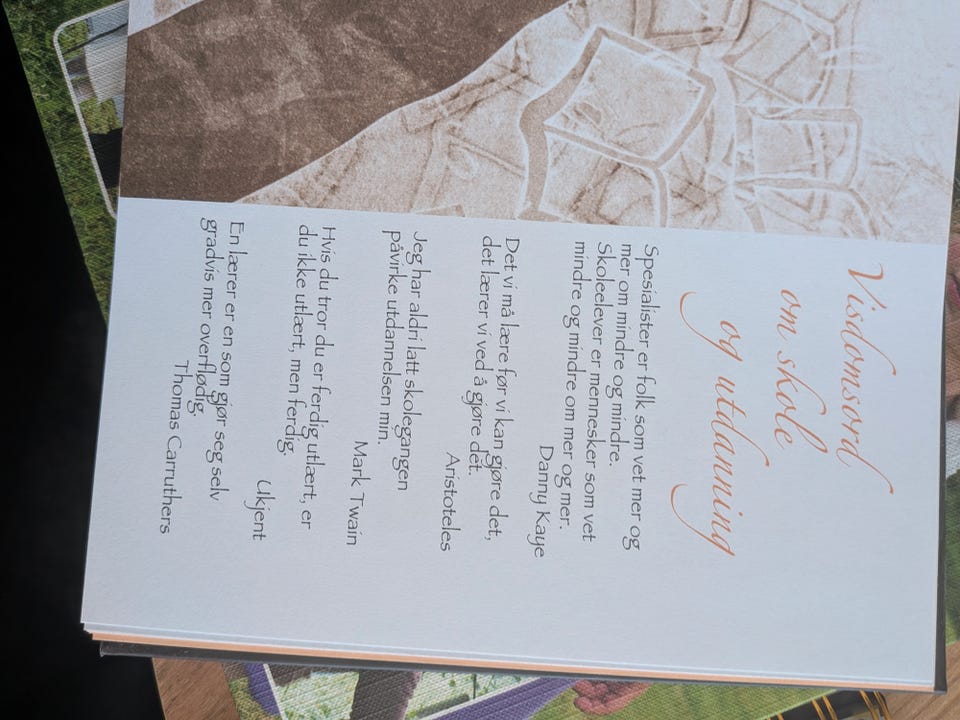 Visdomsord
om skole
og utdanning
Spesialister er folk som vet mer og
mer om mindre og mindre.
Skoleelever er mennesker som vet
mindre og mindre om mer og mer.
Danny Kaye
Det vi må lære før vi kan gjøre det,
det lærer vi ved å gjøre det.
Aristoteles
Jeg har aldri latt skolegangen
påvirke utdannelsen min.
Mark Twain
Hvis du tror du er ferdig utlært, er
du ikke utlært, men ferdig.
Ukjent
En lærer er en som gjør seg selv
gradvis mer overflødig.
Thomas Carruthers